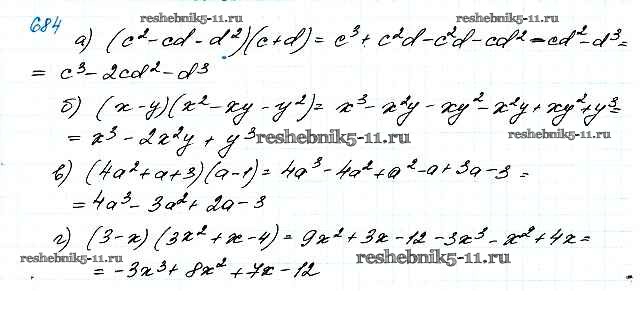 684
reshebnik5-11.ru
reshebnik5-11.ru
а) (c²-cd-d²)(c+d) = c³+c²d-c²d-cd²-cd²-d³=
= c³-2cd²-d³
reshebnik5-11.ru
б) (x-y)(x²-xy-y²)= x³-x²y-xy²-x²y+xy²+y³=
= x³-2x²y+y³
reshebnik5-11.ru
reshebnik5-11.ru
в) (4a²+a+3)(a-1)= 4a³-4a²+a²-a+3a-3=
=4a³-3a²+2a-3
г) (3-x)(3x²+x-4)= 9x²+3x-12-3x³-x²+4x=
reshebnik5-11.ru
reshebnik5-11.ru
= -3x³+8x²+7x-12